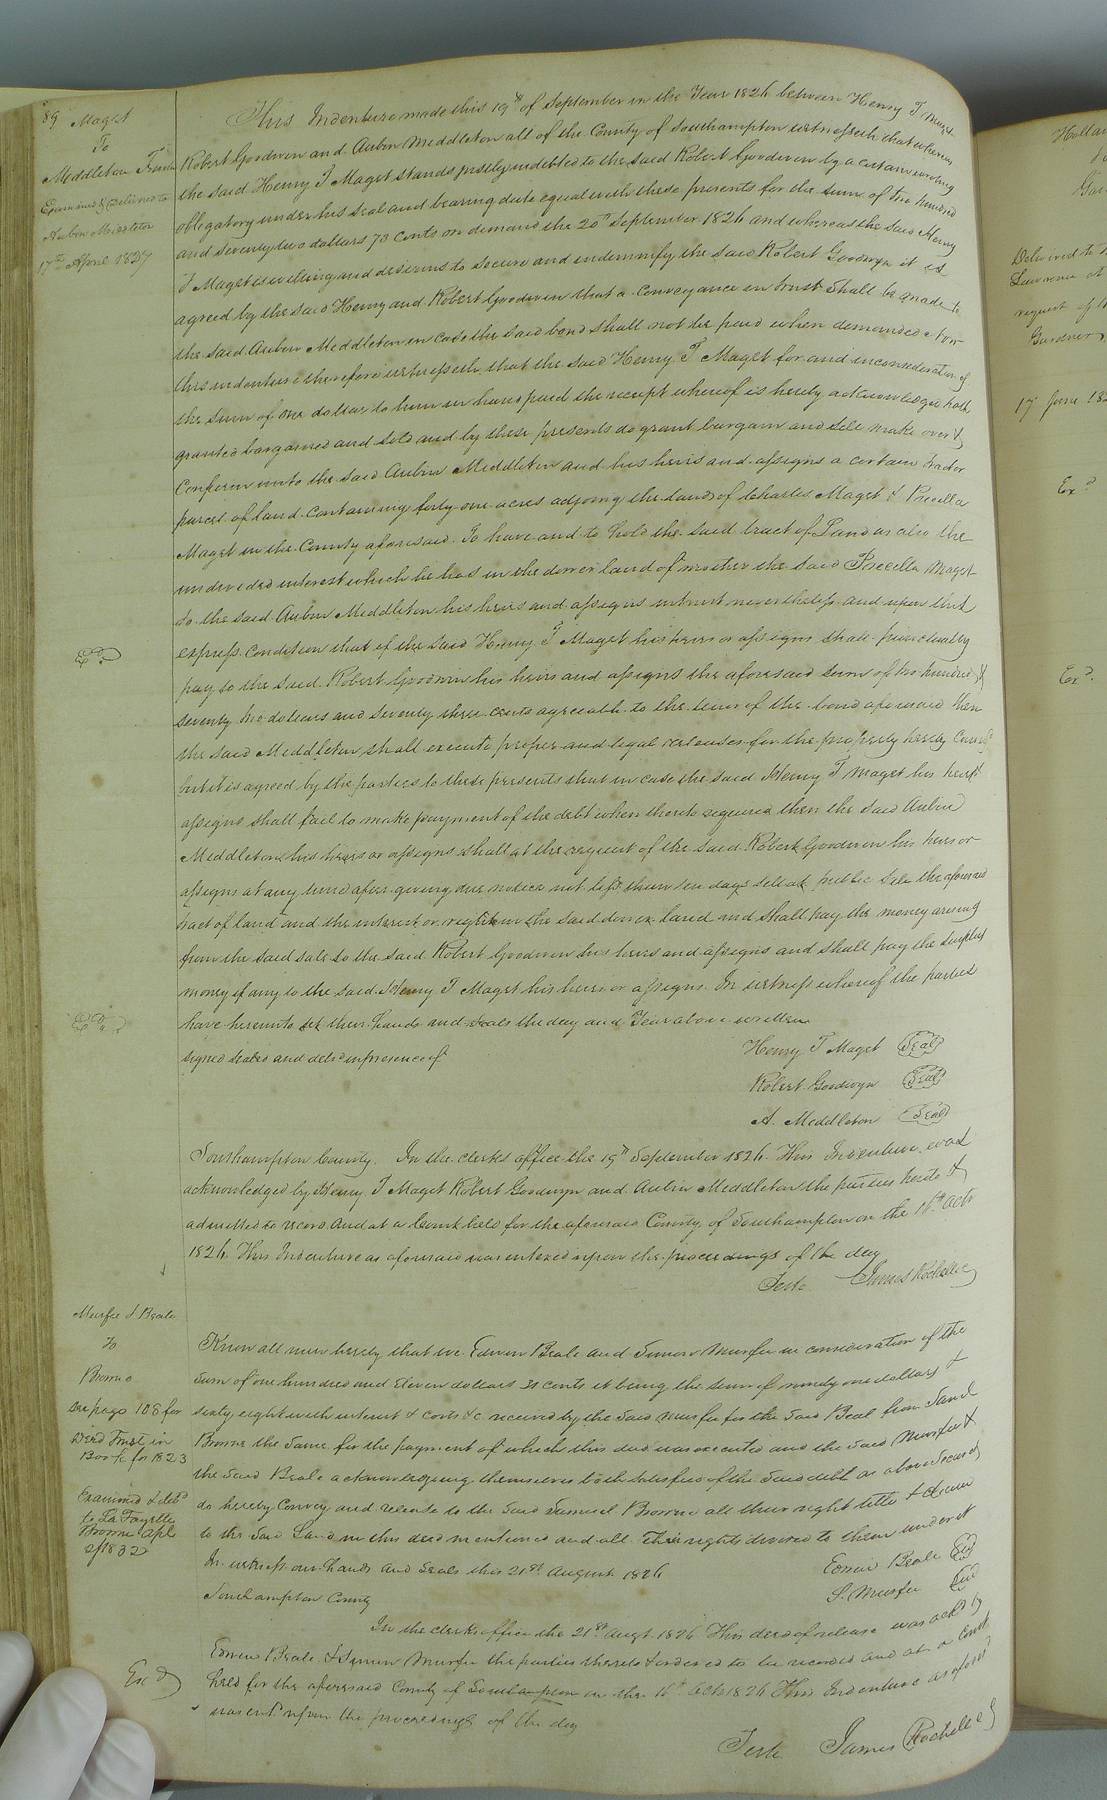 89 Maget
To
Middleton Trustee
Examined & Delivered to
Aubin Middleton
17th April 1827
This Indenture made this 19th of September in the Year 1826 between Henry T Maget
Robert Goodwin and Aubin Middleton all of the County of Southampton witnesseth that whereas
the said Henry T Maget stands justly indebted to the said Robert Goodwin by a certain writing
obligatory under his seal and bearing date equal with these presents for the sum of two hundred
and seventy two dollars 73 cents on demand the 20th September 1826 and whereas the said Henry
T Maget is willing and desirous to secure and indemnify the said Robert Goodwyn it is
agreed by the said Henry and Robert Goodwin that a conveyance in trust shall be made to
the said Aubin Middleton in case the said bond shall not be paid when demanded Now
this indenture therefore witnesseth, that the said Henry T Maget for and in consideration of
the sum of one dollar to him in hand paid the receipt whereof is hereby acknowledged hath
granted bargained and sold and by these presents do grant bargain and sell make over &
Confirm unto the said Aubin Middleton and his heirs and assigns a certain tract or
parcel of land containing forty one acres adjoing the lands of Charles Maget & Pricella
Maget in the County aforesaid. To have and to hold the said tract of Land as also the
undivided interest which he has in the dower land of mother the said Pricella Maget
to the said Aubin Middleton his heirs and assigns intrust nevertheless and upon this
express condition that if the said Henry T Maget his heirs or assigns shall punctually
pay to the said Robert Goodwin his heirs and assigns the aforesaid sum of two hundred &
seventy two dollars and seventy three cents agreeable to the tenor of the bond aforesaid then
the said Middleton shall execute proper and legal releases for the property hereby Conveyed
but it is agreed by the parties to these presents that in case the said Henry T Maget his heirs &
assigns shall fail to make payment of the debt when thereto required then the said Aubin
Middleton his heirs or assigns shall at the request of the said Robert Goodwin his heirs or
assigns at any time after giving due notice not less than ten days sell at public sale the aforesaid
tract of land and the interest or right in the said dower land and shall pay the money arising
from the said sale to the said Robert Goodwin his heirs and assigns and shall pay the surplus
money if any to the said Henry T Maget his heirs or assigns. In witness whereof the parties
have hereunto set their hands and seals the day and Year above written
signed sealed and deld in presence of
Henry T Maget Seal
Robert Goodwyn Seal
A. Middleton Seal
Southampton County. In the clerks office the 19th September 1826. This Indenture was
acknowledged by Henry T Maget Robert Goodwyn and Aubin Middleton the parties hereto &
admitted to record. And at a Court held for the aforesaid County of Southampton on the 16th Octr
1826. This Indenture as aforesaid was entered upon the proceedings of the day
Teste James Rochelle
Murfee & Beale
To
Browne
See page 108 for
Deed Trust in
Book for 1823
Examined & deld
to La Fayette
Browne Apl
2d 1832
Know all men hereby that we Edwin Beale and Simon Murfee in consideration of the
sum of one hundred and eleven dollars 31 cents it being the sum of ninety one dollars &
sixty eight with interest & costs &c received by the said Murfee for the said Beal from Saml
Browne the same for the payment of which this deed was executed and the said Murfee &
the said Beale acknowledging themselves both satisfied of the said debt as above Secured
do hereby convey and release to the said Samuel Browne all their right title & claim
to the said Land in this deed mentioned and all the rights devised to them under it
In witness our hands and seals this 21st August 1826
Edwin Beale Seal
S. Murfee Seal
Southampton County
In the clerks office the 21st Augt 1826 This deed of release was ackd by
Edwin Beale & Simon Murfee the parties thereto & ordered to be recorded and at a Court
held for the aforesaid County of Southampton on the 16th Octo 1826 This Indenture as aforesd
was entd upon the proceedings of the day
Teste James Rochelle
Exd
Holla
Gar
Delivered to
Lawrence at
request of
Gardner
17 June 18
Exd
Exd.